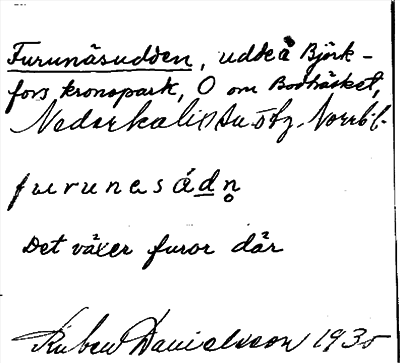 Furunäsudden, udde å Björk-
fors kronopark, O om Bodträsket,
Nederkalix ta öbg. Norrb. l.
furunesådn
Det växer furor där
Ruben Danielsson 1935